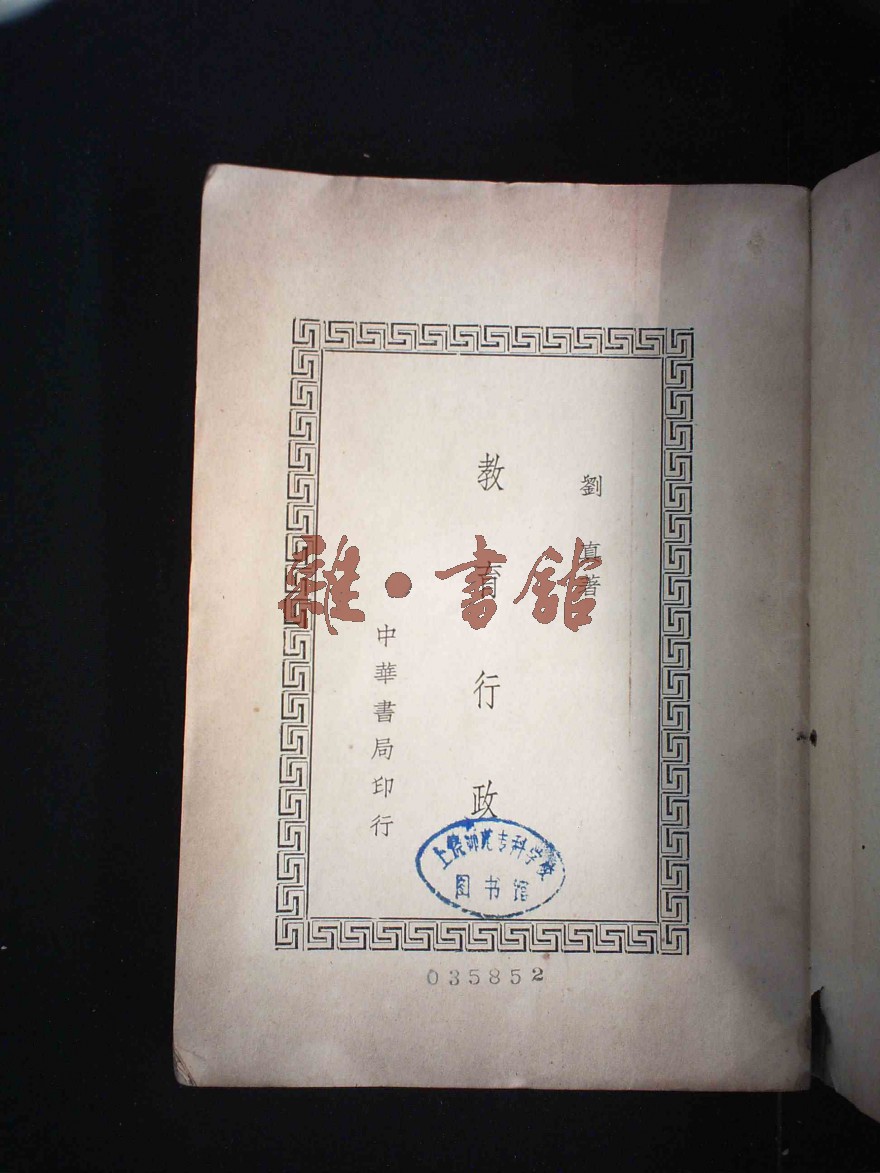 劉真著
教育行政
中華書局印行
雜·書館
上饶师范专科学校
图书馆
035852